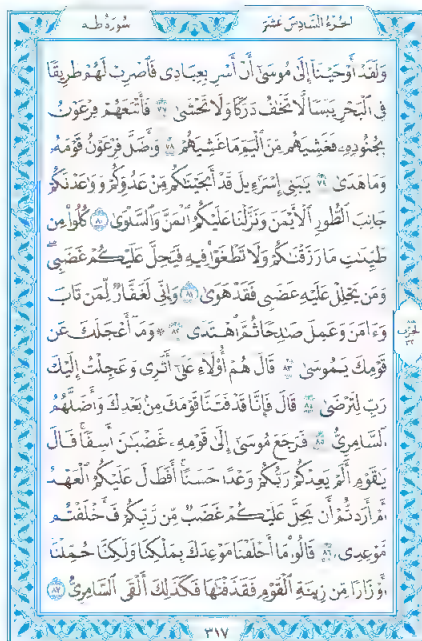 الجزء السادس عشر
سورة طه
وَلَقَدْ أَوْحَيْنَا إِلَىٰ مُوسَىٰ أَنْ أَسْرِ بِعِبَادِي فَاضْرِبْ لَهُمْ طَرِيقًا
فِي الْبَحْرِ يَبَسًا لَا تَخَافُ دَرَكًا وَلَا تَخْشَىٰ ٧٧ فَأَتْبَعَهُمْ فِرْعَوْنُ
بِجُنُودِهِ فَغَشِيَهُمْ مِنَ الْيَمِّ مَا غَشِيَهُمْ ٧٨ وَأَضَلَّ فِرْعَوْنُ قَوْمَهُ
وَمَا هَدَىٰ ٧٩ يَٰبَنِي إِسْرَٰءِيلَ قَدْ أَنجَيْنَٰكُم مِّنْ عَدُوِّكُمْ وَوَٰعَدْنَٰكُمْ
جَانِبَ الطُّورِ الْأَيْمَنَ وَنَزَّلْنَا عَلَيْكُمُ الْمَنَّ وَالسَّلْوَىٰ ٨٠ كُلُوا مِن
طَيِّبَٰتِ مَا رَزَقْنَٰكُمْ وَلَا تَطْغَوْا فِيهِ فَيَحِلَّ عَلَيْكُمْ غَضَبِي
وَمَن يَحْلِلْ عَلَيْهِ غَضَبِي فَقَدْ هَوَىٰ ٨١ وَإِنِّي لَغَفَّارٌ لِّمَن تَابَ
وَءَامَنَ وَعَمِلَ صَٰلِحًا ثُمَّ اهْتَدَىٰ ٨٢ ۞ وَمَا أَعْجَلَكَ عَن
قَوْمِكَ يَٰمُوسَىٰ ٨٣ قَالَ هُمْ أُوْلَاءِ عَلَىٰ أَثَرِي وَعَجِلْتُ إِلَيْكَ
رَبِّ لِتَرْضَىٰ ٨٤ قَالَ فَإِنَّا قَدْ فَتَنَّا قَوْمَكَ مِنْ بَعْدِكَ وَأَضَلَّهُمُ
السَّامِرِيُّ ٨٥ فَرَجَعَ مُوسَىٰ إِلَىٰ قَوْمِهِ غَضْبَٰنَ أَسِفًا قَالَ
يَٰقَوْمِ أَلَمْ يَعِدْكُمْ رَبُّكُمْ وَعْدًا حَسَنًا أَفَطَالَ عَلَيْكُمُ الْعَهْدُ
أَمْ أَرَدتُّمْ أَن يَحِلَّ عَلَيْكُمْ غَضَبٌ مِّن رَّبِّكُمْ فَأَخْلَفْتُم
مَّوْعِدِي ٨٦ قَالُوا مَا أَخْلَفْنَا مَوْعِدَكَ بِمَلْكِنَا وَلَٰكِنَّا حُمِّلْنَا
أَوْزَارًا مِّن زِينَةِ الْقَوْمِ فَقَذَفْنَٰهَا فَكَذَٰلِكَ أَلْقَى السَّامِرِيُّ ٨٧
٣١٧